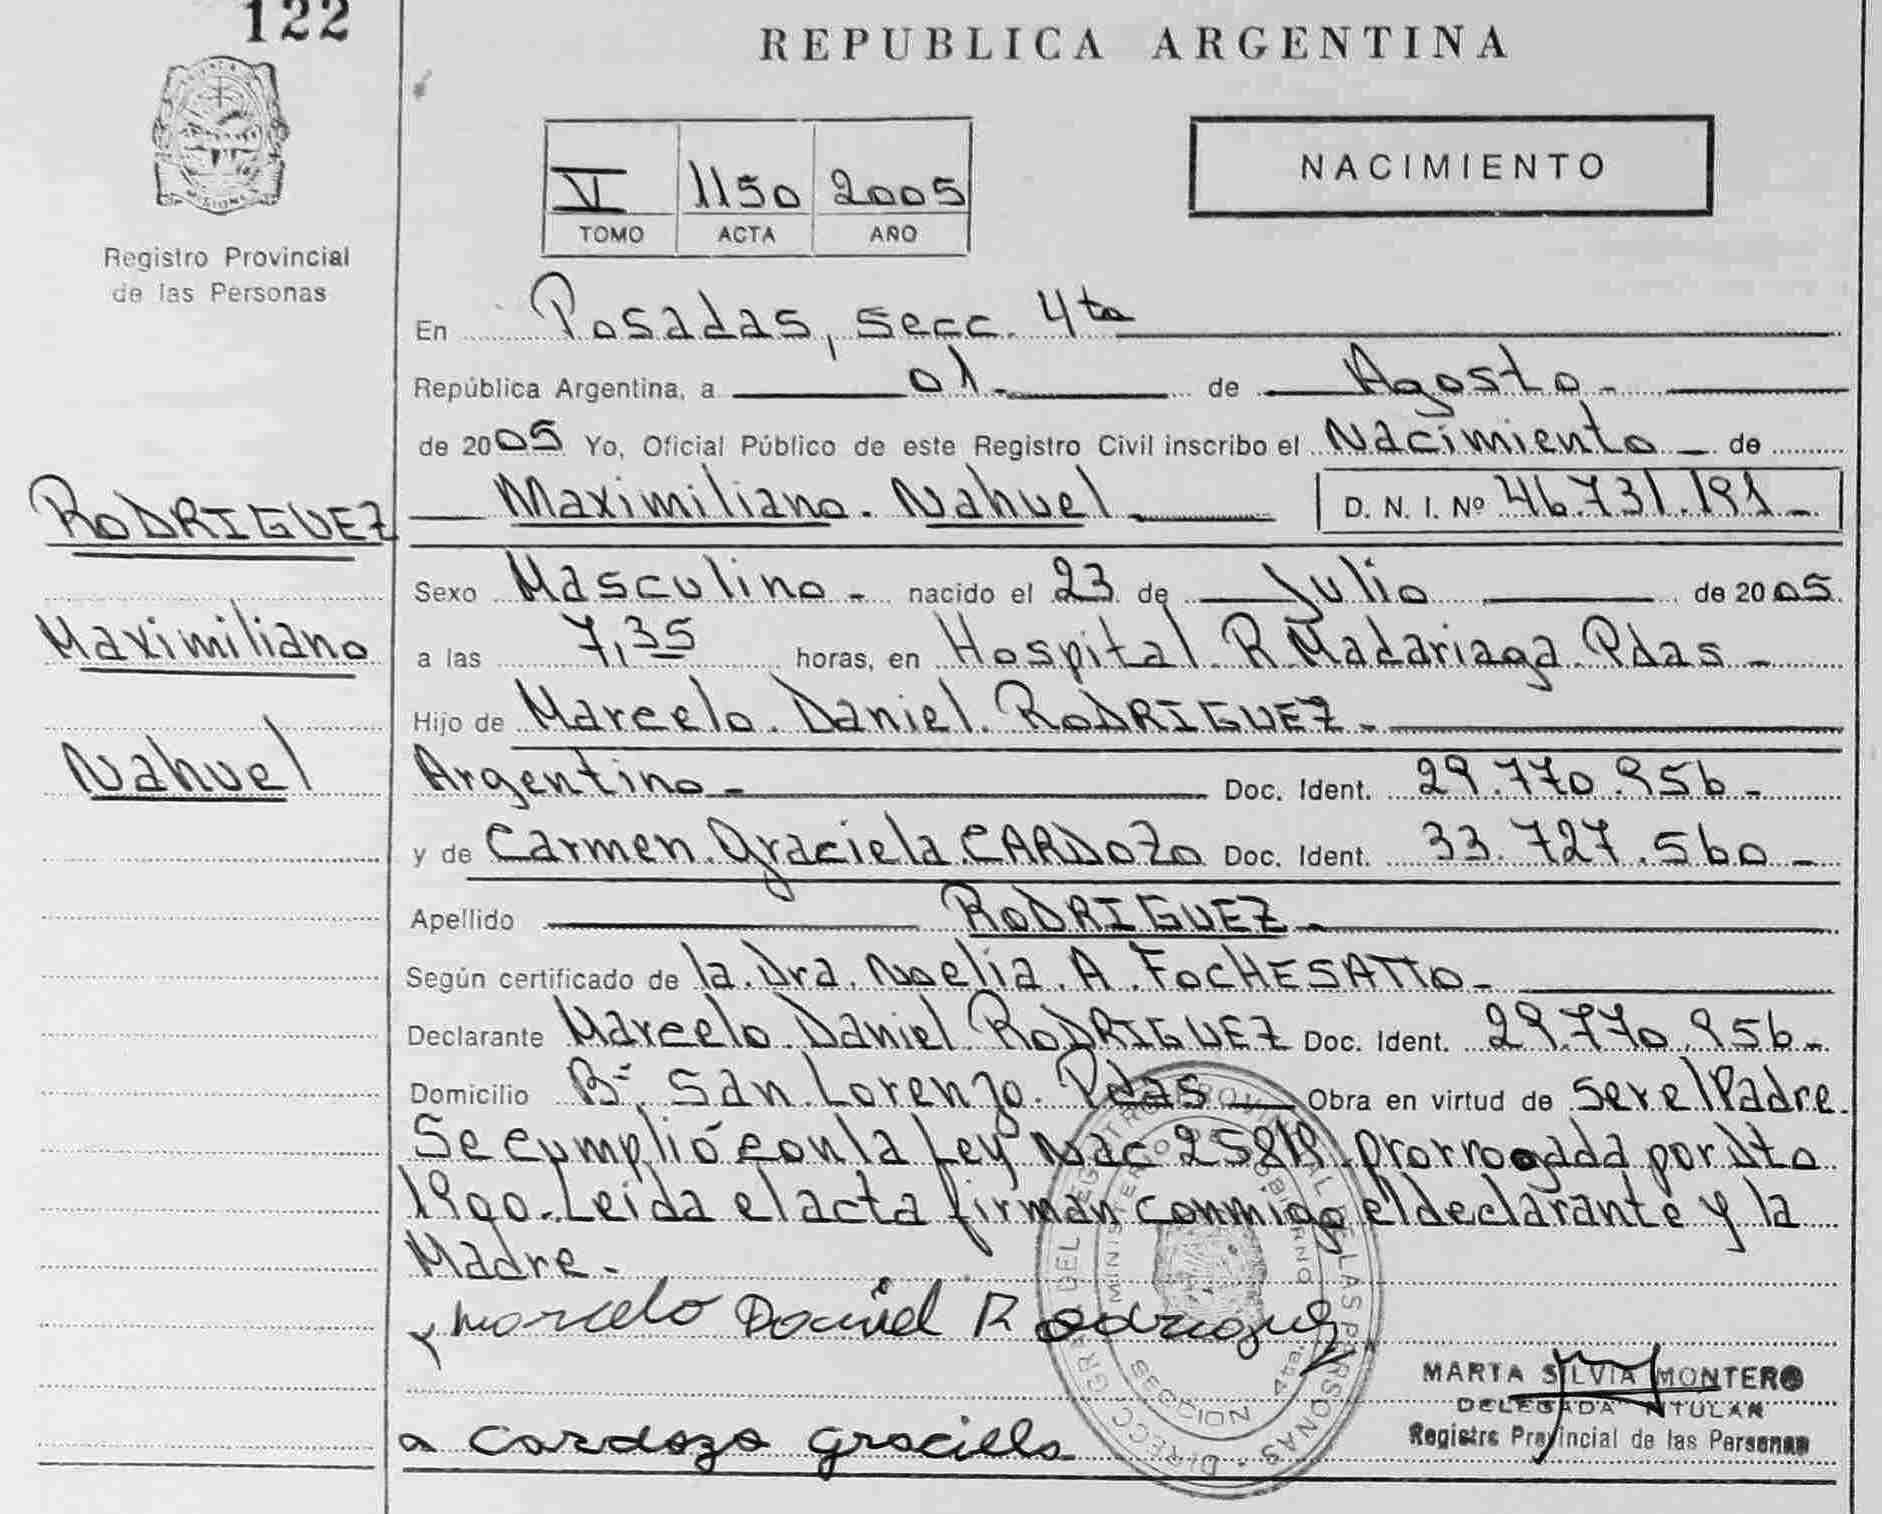 122
REPUBLICA ARGENTINA
VI 1150 2005
TOMO ACTA AÑO
NACIMIENTO
Registro Provincial
de las Personas
En Posadas, secc. 4ta
República Argentina, a 01 de Agosto
de 2005 Yo, Oficial Público de este Registro Civil inscribo el Nacimiento de
RODRIGUEZ
Maximiliano
Nahuel
Maximiliano Nahuel D. N. I. Nº 46.731.191
Sexo Masculino nacido el 23 de Julio de 2005
a las 7,35 horas, en Hospital R. Madariaga Pdas
Hijo de Marcelo Daniel RODRIGUEZ
Argentino Doc. Ident. 29.770.956
y de Carmen Graciela CARDOZO Doc. Ident. 33.727.560
Apellido RODRIGUEZ
Según certificado de la Dra. Noelia A. FOCHESATTO
Declarante Marcelo Daniel RODRIGUEZ Doc. Ident. 29.770.956
Domicilio Bº San Lorenzo. Pdas Obra en virtud de ser el Padre.
Se cumplió con la Ley Nac 25819 prorrogada por Dto
1990. Leida el acta firman conmigo el declarante y la
Madre.
Marcelo Daniel Rodriguez
MARTA SILVIA MONTERO
DELEGADA TITULAR
Registro Provincial de las Personas
Cardozo graciela
MINISTERIO GOBIERNO
SECCION 4ta.